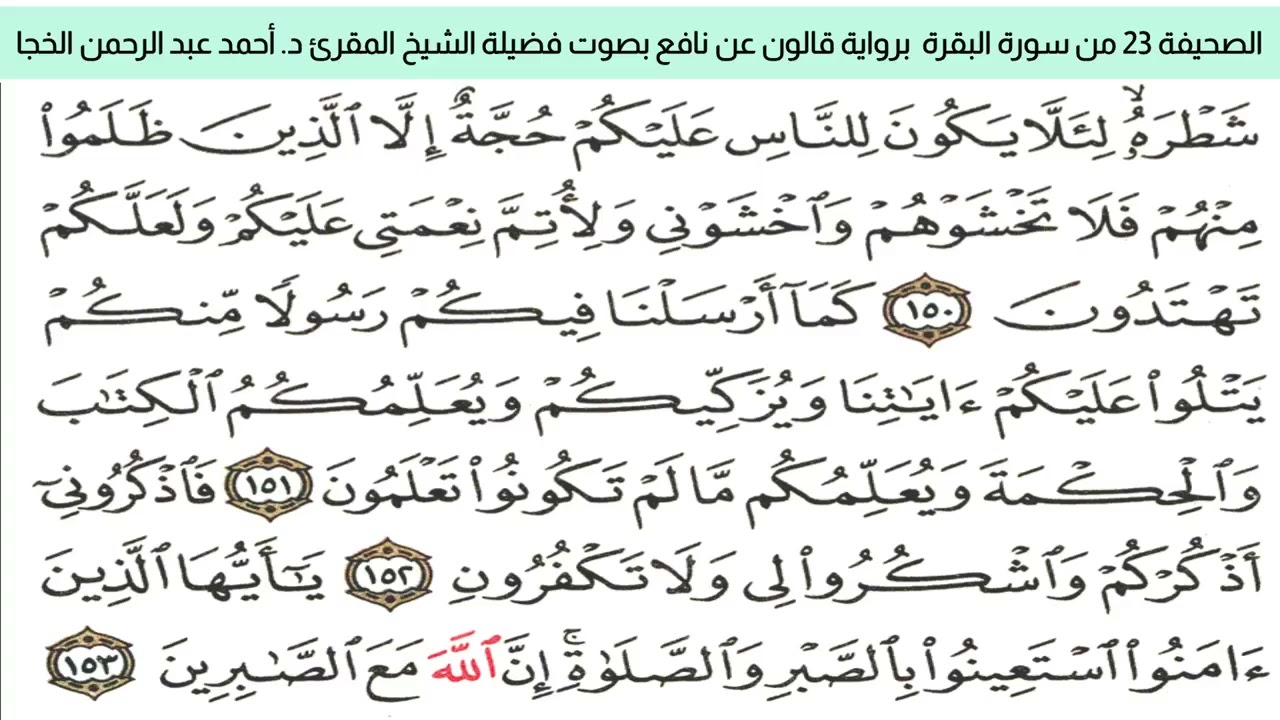 الصحيفة 23 من سورة البقرة برواية قالون عن نافع بصوت فضيلة الشيخ المقرئ د. أحمد عبد الرحمن الخجا
شَطْرَهُۥۙ لِئَلَّا يَكُونَ لِلنَّاسِ عَلَيْكُمْ حُجَّةٌ إِلَّا ٱلَّذِينَ ظَلَمُواْ
مِنْهُمْ فَلَا تَخْشَوْهُمْ وَٱخْشَوْنِي وَلِأُتِمَّ نِعْمَتِي عَلَيْكُمْ وَلَعَلَّكُمْ
تَهْتَدُونَ ١٥٠ كَمَآ أَرْسَلْنَا فِيكُمْ رَسُولًا مِّنكُمْ
يَتْلُواْ عَلَيْكُمْ ءَايَٰتِنَا وَيُزَكِّيكُمْ وَيُعَلِّمُكُمُ ٱلْكِتَٰبَ
وَٱلْحِكْمَةَ وَيُعَلِّمُكُم مَّا لَمْ تَكُونُواْ تَعْلَمُونَ ١٥١ فَٱذْكُرُونِيٓ
أَذْكُرْكُمْ وَٱشْكُرُواْ لِي وَلَا تَكْفُرُونِ ١٥٢ يَٰٓأَيُّهَا ٱلَّذِينَ
ءَامَنُواْ ٱسْتَعِينُواْ بِٱلصَّبْرِ وَٱلصَّلَوٰةِۚ إِنَّ ٱللَّهَ مَعَ ٱلصَّٰبِرِينَ ١٥٣